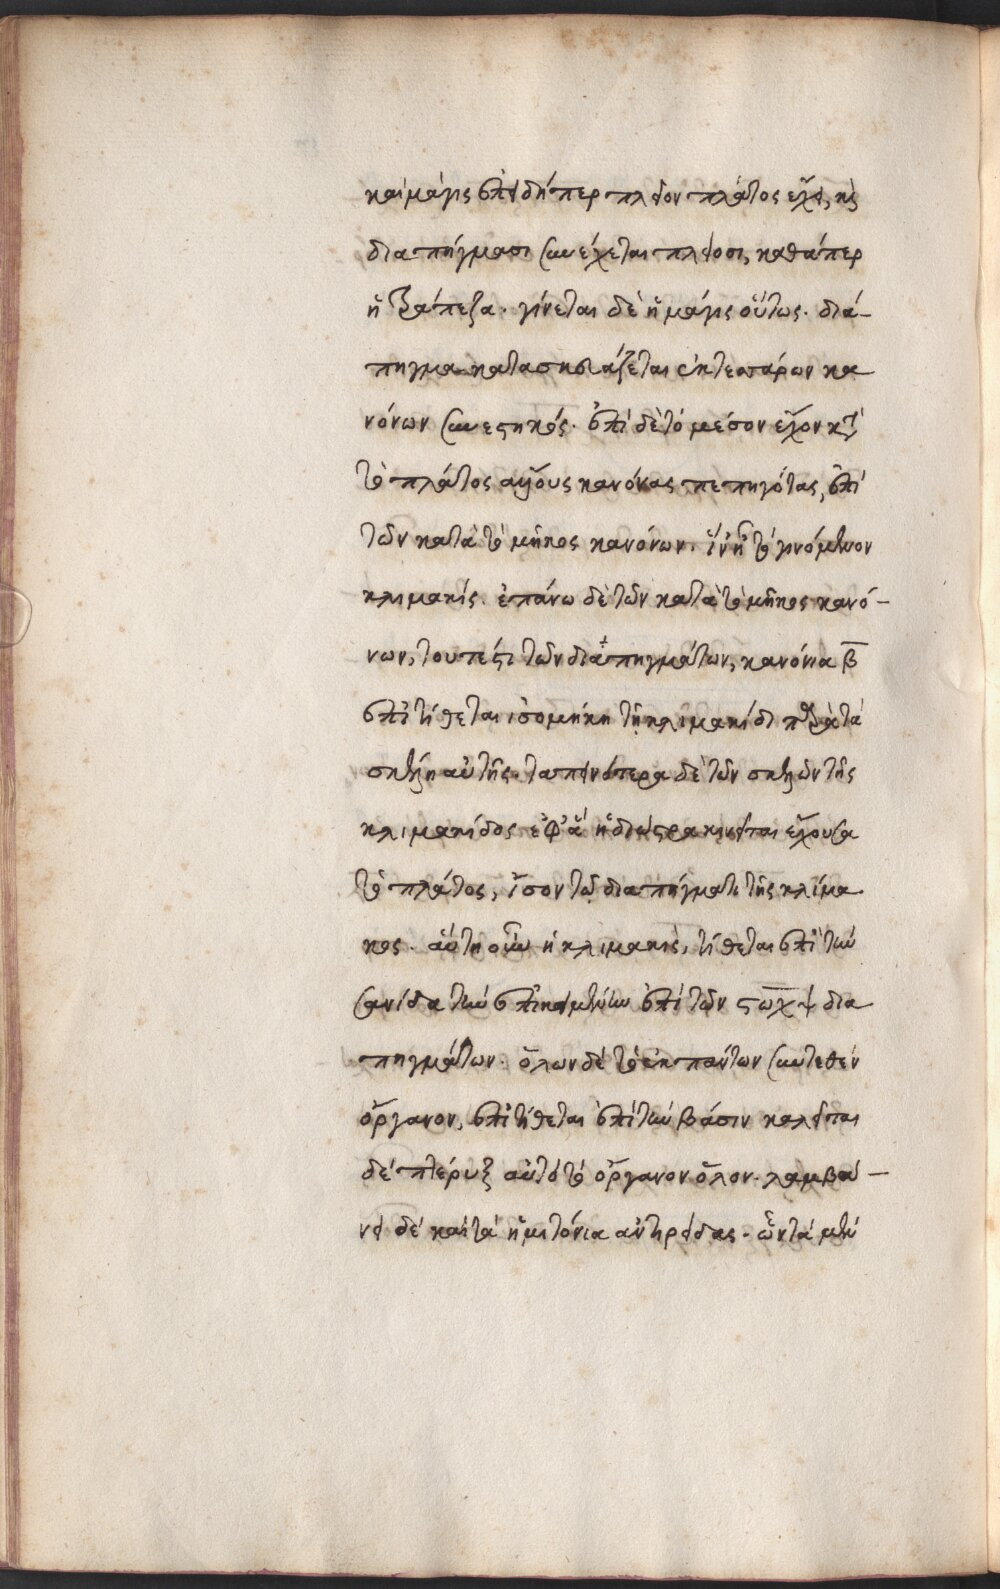 καὶ μάγις ἐπειδήπερ πλεῖον πλάτος ἔχει, καὶ
διαπήγμασι συνέχεται πλείοσι, καθάπερ
ἡ τράπεζα. γίνεται δὲ ἡ μάγις οὕτως. διά-
πηγμα κατασκευάζεται ἐκ τεσσάρων κα
νόνων συνεστηκός. ἐπὶ δὲ τὸ μέσον ἔχον κατὰ
τὸ πλάτος αὐτοὺς κανόνας πεπηγότας, ἐπὶ
τῶν κατὰ τὸ μῆκος κανόνων. ἵν' ᾖ τὸ γινόμενον
κλιμακίς. ἐπάνω δὲ τῶν κατὰ τὸ μῆκος κανό-
νων, τουτέστι τῶν διαπηγμάτων, κανόνια β
ἐπιτίθεται ἰσομήκη τῇ κλιμακίδι παρὰ τὰ
σκέλη αὐτῆς. ταπεινότερα δὲ τῶν σκελῶν τῆς
κλιμακίδος ἐφ' ἃ ἡ διώστρα κινεῖται ἔχουσα
τὸ πλάτος, ἴσον τῷ διαπήγματι τῆς κλίμα
κος. αὕτη οὖν ἡ κλιμακὶς, τίθεται ἐπὶ τὴν
σανίδα τὴν ἐπικειμένην ἐπὶ τῶν ϛωχψ δια
πηγμάτων. ὅλων δὲ τὸ ἐκ πάντων συντεθὲν
ὄργανον, ἐπιτίθεται ἐπὶ τὴν βάσιν καλεῖται
δὲ πτέρυξ αὐτὸ τὸ ὄργανον ὅλον. λαμβά-
νει δὲ καὶ τὰ ἡμιτόνια ἀντηρείδας. ὧν τὰ μὲν